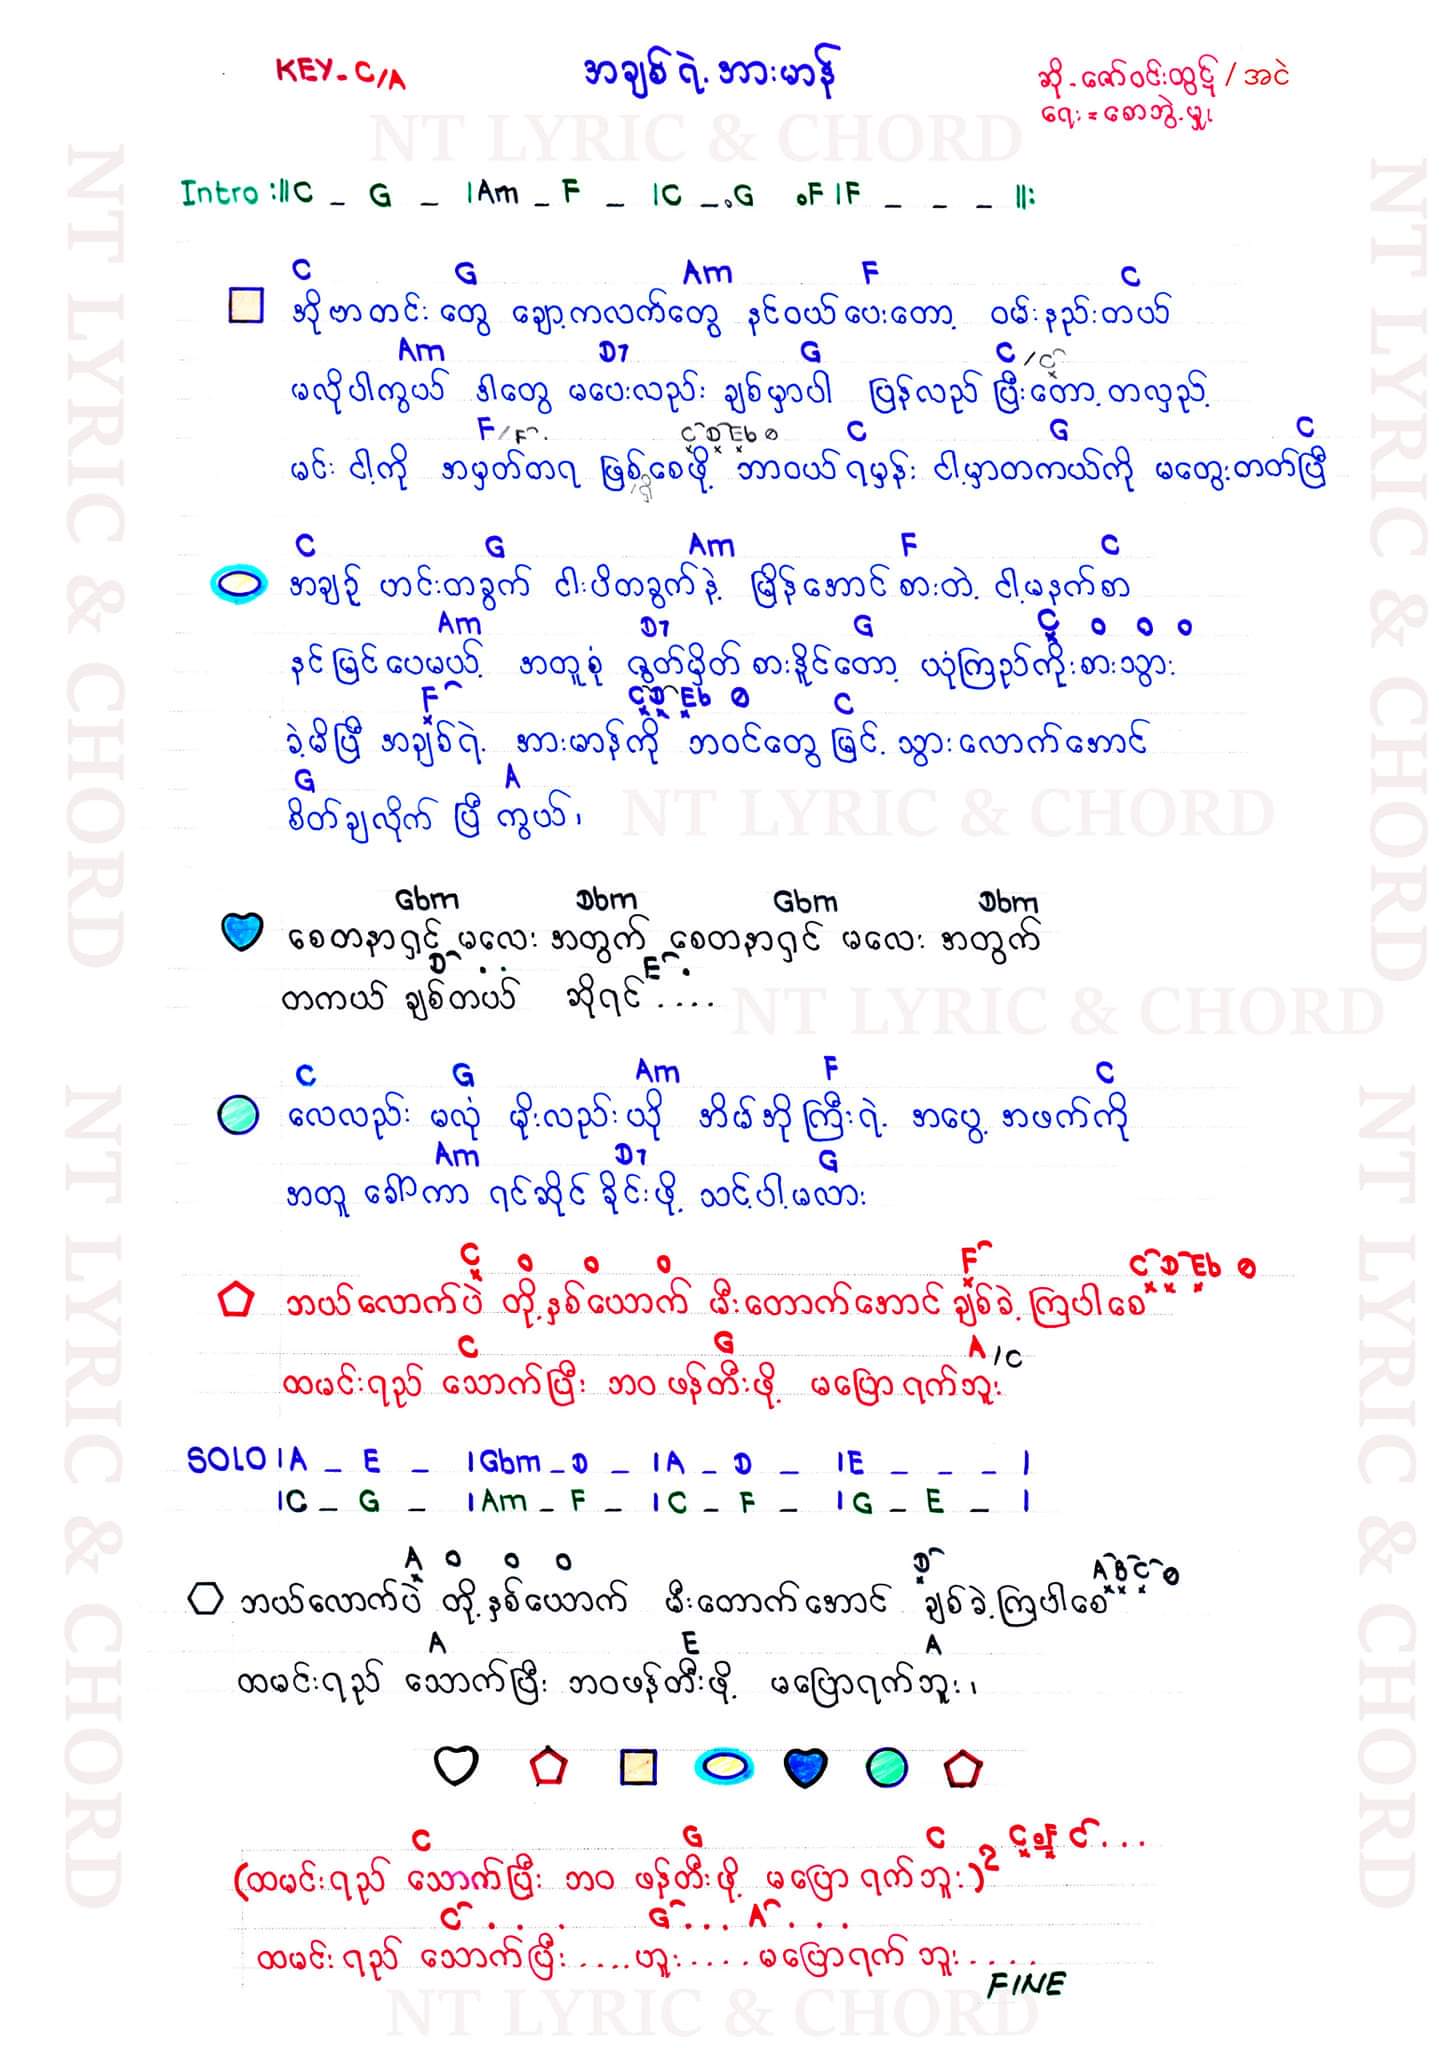 KEY - C/A
အချစ်ရဲ့ အားမာန်
ဆို - ဇော်ဝင်းထွဋ် / အငဲ
ရေး = စောဘွဲ့မှူး
NT LYRIC & CHORD
Intro :||C _ G _ |Am _ F _ |C _ .G .F |F _ _ _ ||:
C G Am F C
အိုဗာတင်းတွေ ချော့ကလက်တွေ နင်ဝယ်ပေးတော့ ဝမ်းနည်းတယ်
Am D7 G C / C
မလိုပါကွယ် ဒါတွေ မပေးလည်း ချစ်မှာပါ ပြန်လည် ပြီးတော့ တလှည့်
F / F C D Eb C G C
မင်း ငါ့ကို အမှတ်တရ ဖြစ်စေဖို့ ဘာဝယ်ရမှန်း ငါ့မှာတကယ်ကို မတွေးတတ်ပြီ
C G Am F C
အချဉ် ဟင်းတခွက် ငါးပိတခွက်နဲ့ မြိန်အောင် စားတဲ့ ငါ့မနက်စာ
Am D7 G C
နင်မြင်ပေမယ့် အတူစုံ ဇွတ်မှိတ် စားနိုင်တော့ ယုံကြည်ကိုးစားသွား
F C D Eb C
ခဲ့မိပြီ အချစ်ရဲ့ အားမာန်ကို ဘဝင်တွေ မြင့်သွားလောက်အောင်
G A
စိတ်ချလိုက် ပြီ ကွယ်၊
NT LYRIC & CHORD
Gbm Dbm Gbm Dbm
စေတနာရှင် မလေး အတွက် စေတနာရှင် မလေး အတွက်
D E
တကယ် ချစ်တယ် ဆိုရင် ....
NT LYRIC & CHORD
C G Am F C
လေလည်း မလုံ မိုးလည်းယို အိမ်အိုကြီးရဲ့ အပွေ့ အဖက်ကို
Am D7 G
အတူ ခေါ်ကာ ရင်ဆိုင် ခိုင်းဖို့ သင့်ပါ့မလား
C F C D Eb
ဘယ်လောက်ပဲ တို့နှစ်ယောက် မီးတောက်အောင် ချစ်ခဲ့ကြပါစေ
C G A/C
ထမင်းရည် သောက်ပြီး ဘဝ ဖန်တီးဖို့ မပြောရက်ဘူး
SOLO |A _ E _ |Gbm _ D _ |A _ D _ |E _ _ _ |
|C _ G _ |Am _ F _ |C _ F _ |G _ E _ |
A D A B C
ဘယ်လောက်ပဲ တို့နှစ်ယောက် မီးတောက်အောင် ချစ်ခဲ့ကြပါစေ
A E A
ထမင်းရည် သောက်ပြီး ဘဝဖန်တီးဖို့ မပြောရက်ဘူး၊
C G C C F C ...
(ထမင်းရည် သောက်ပြီး ဘဝ ဖန်တီးဖို့ မပြောရက်ဘူး)2
C . . . G ... A . . .
ထမင်းရည် သောက်ပြီး ....ဟူး.... မပြောရက်ဘူး.....
FINE
NT LYRIC & CHORD
NT LYRIC & CHORD
NT LYRIC & CHORD
NT LYRIC & CHORD
NT LYRIC & CHORD